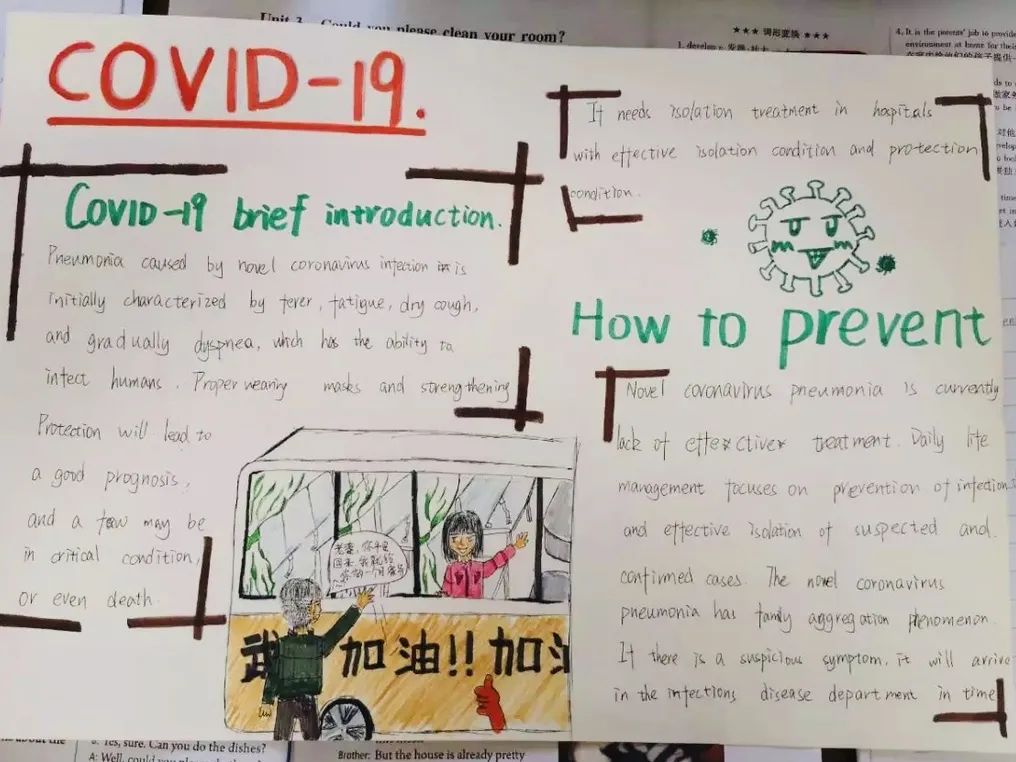 Unit 3 Could you please clean your room?
★★★ 词形变换 ★★★
1. develop v. 发展
4. It is the parents' job to provide
environment at home for their
COVID-19.
COVID-19 brief introduction.
Pneumonia caused by novel coronavirus infection is
initially characterized by fever, fatigue, dry cough,
and gradually dyspnea, which has the ability to
infect humans. Proper wearing masks and strengthening
Protection will lead to
a good prognosis,
and a few may be
in critical condition,
or even death.
It needs isolation treatment in hospitals
with effective isolation condition and protection
condition.
How to prevent
Novel coronavirus pneumonia is currently
lack of effective treatment. Daily life
management focuses on prevention of infection
and effective isolation of suspected and
confirmed cases. The novel coronavirus
pneumonia has family aggregation phenomenon.
If there is a suspicious symptom, it will arrive
in the infections disease department in time
老婆，你平安
回来 我就给
你做一个月家务
武 加油!! 加油
Yes, sure. Can you do the dishes?
A: Well, could you please
Brother: But the house is already pretty